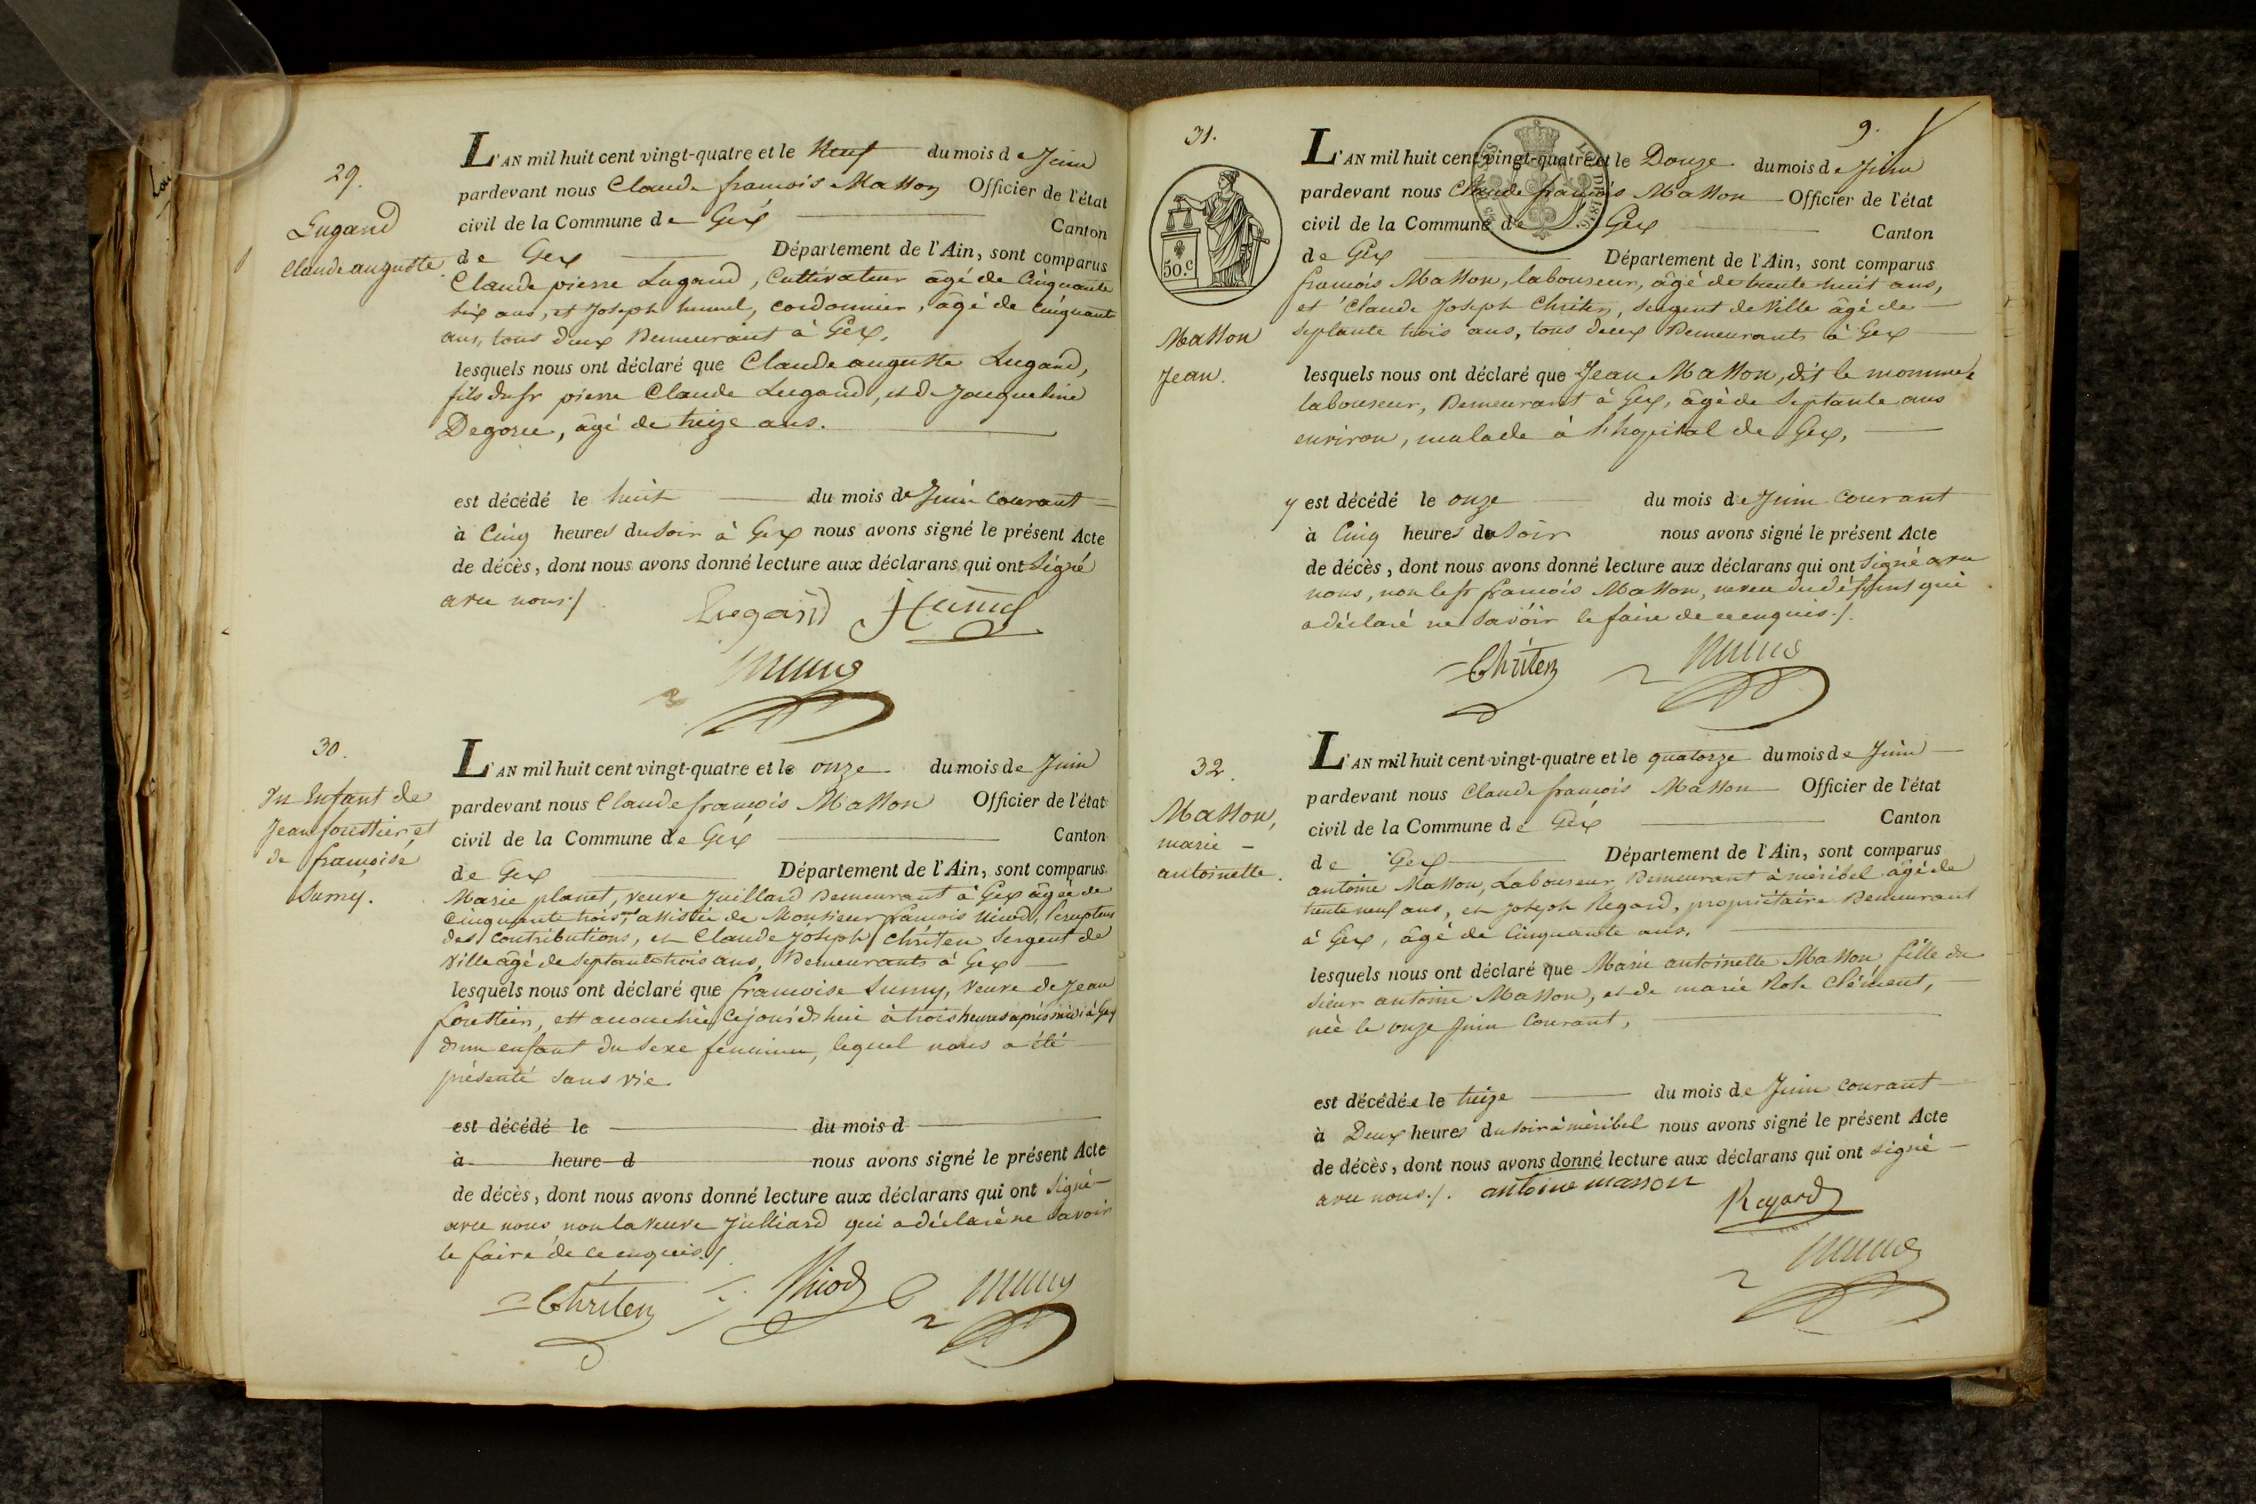 29.
Lugand
Claude auguste.
L'AN mil huit cent vingt-quatre et le Neuf du mois de Juin
pardevant nous Claude françois Masson Officier de l'état
civil de la Commune de Gex Canton
de Gex Département de l'Ain, sont comparus
Claude pierre Lugand, Cultivateur âgé de Cinquante
six ans, et Joseph humel, cordonnier, âgé de cinquante
ans, tous deux Demeurant à Gex,
lesquels nous ont déclaré que Claude auguste Lugand,
fils du sr pierre Claude Lugand, et de Jacqueline
âgé de treize ans.
est décédé le huit du mois de Juin courant
à Cinq heures du soir à Gex nous avons signé le présent Acte
de décès, dont nous avons donné lecture aux déclarans qui ont Signé
avec nous./.
Lugand
30.
Un Enfant de
Jean fouttier et
de françoise
Sumy.
L'AN mil huit cent vingt-quatre et le onze du mois de Juin
pardevant nous Claude françois Masson Officier de l'état
civil de la Commune de Gex Canton
de Gex Département de l'Ain, sont comparus
Marie planet, veuve Juillard Demeurant à Gex âgée de
Cinquante trois ans assistée de Monsieur françois Niod, Percepteur
des contributions, et Claude Joseph Chriten Sergent de
Ville âgé de Septante trois ans, Demeurants à Gex
lesquels nous ont déclaré que françoise Sumy, veuve de Jean
fouttier, est accouchée cejourd'hui à trois heures après midi à Gex
d'un enfant du Sexe féminin, lequel nous a été
présenté sans vie.
est décédé le du mois d
à heure d nous avons signé le présent Acte
de décès, dont nous avons donné lecture aux déclarans qui ont Signé
avec nous, non la veuve Juilliard qui a déclaré ne savoir
le faire de ce enquis./.
Chriten
31.
9.
50.c
Masson
Jean.
L'AN mil huit cent vingt-quatre et le Douze du mois de Juin
pardevant nous Claude françois Masson Officier de l'état
civil de la Commune de Gex Canton
de Gex Département de l'Ain, sont comparus
françois Masson, laboureur, âgé de trente huit ans,
et Claude Joseph Chriten, sergent de Ville âgé de
Septante trois ans, tous deux Demeurants à Gex
lesquels nous ont déclaré que Jean Masson, dit le
laboureur, Demeurant à Gex, âgé de Septante ans
environ, malade à l'hopital de Gex,
y est décédé le onze du mois de Juin Courant
à Cinq heures du Soir nous avons signé le présent Acte
de décès, dont nous avons donné lecture aux déclarans qui ont Signé avec
nous, non le sr françois Masson, neveu du déffunt qui
a déclaré ne Savoir le faire de ce enquis./.
Chriten
32.
Masson,
marie -
antoinette.
L'AN mil huit cent vingt-quatre et le quatorze du mois de Juin
pardevant nous Claude françois Masson Officier de l'état
civil de la Commune de Gex Canton
de Gex Département de l'Ain, sont comparus
antoine Masson, Laboureur Demeurant à méribel âgé de
trente neuf ans, et Joseph Regard, propriétaire Demeurant
à Gex, âgé de Cinquante ans.
lesquels nous ont déclaré que Marie antoinette Masson, fille du
Sieur antoine Masson, et de marie Rose Clément,
née le onze Juin Courant,
est décédée le treize du mois de Juin courant
à Deux heures du soir à méribel nous avons signé le présent Acte
de décès, dont nous avons donné lecture aux déclarans qui ont signé
avec nous./. antoine masson
Regard